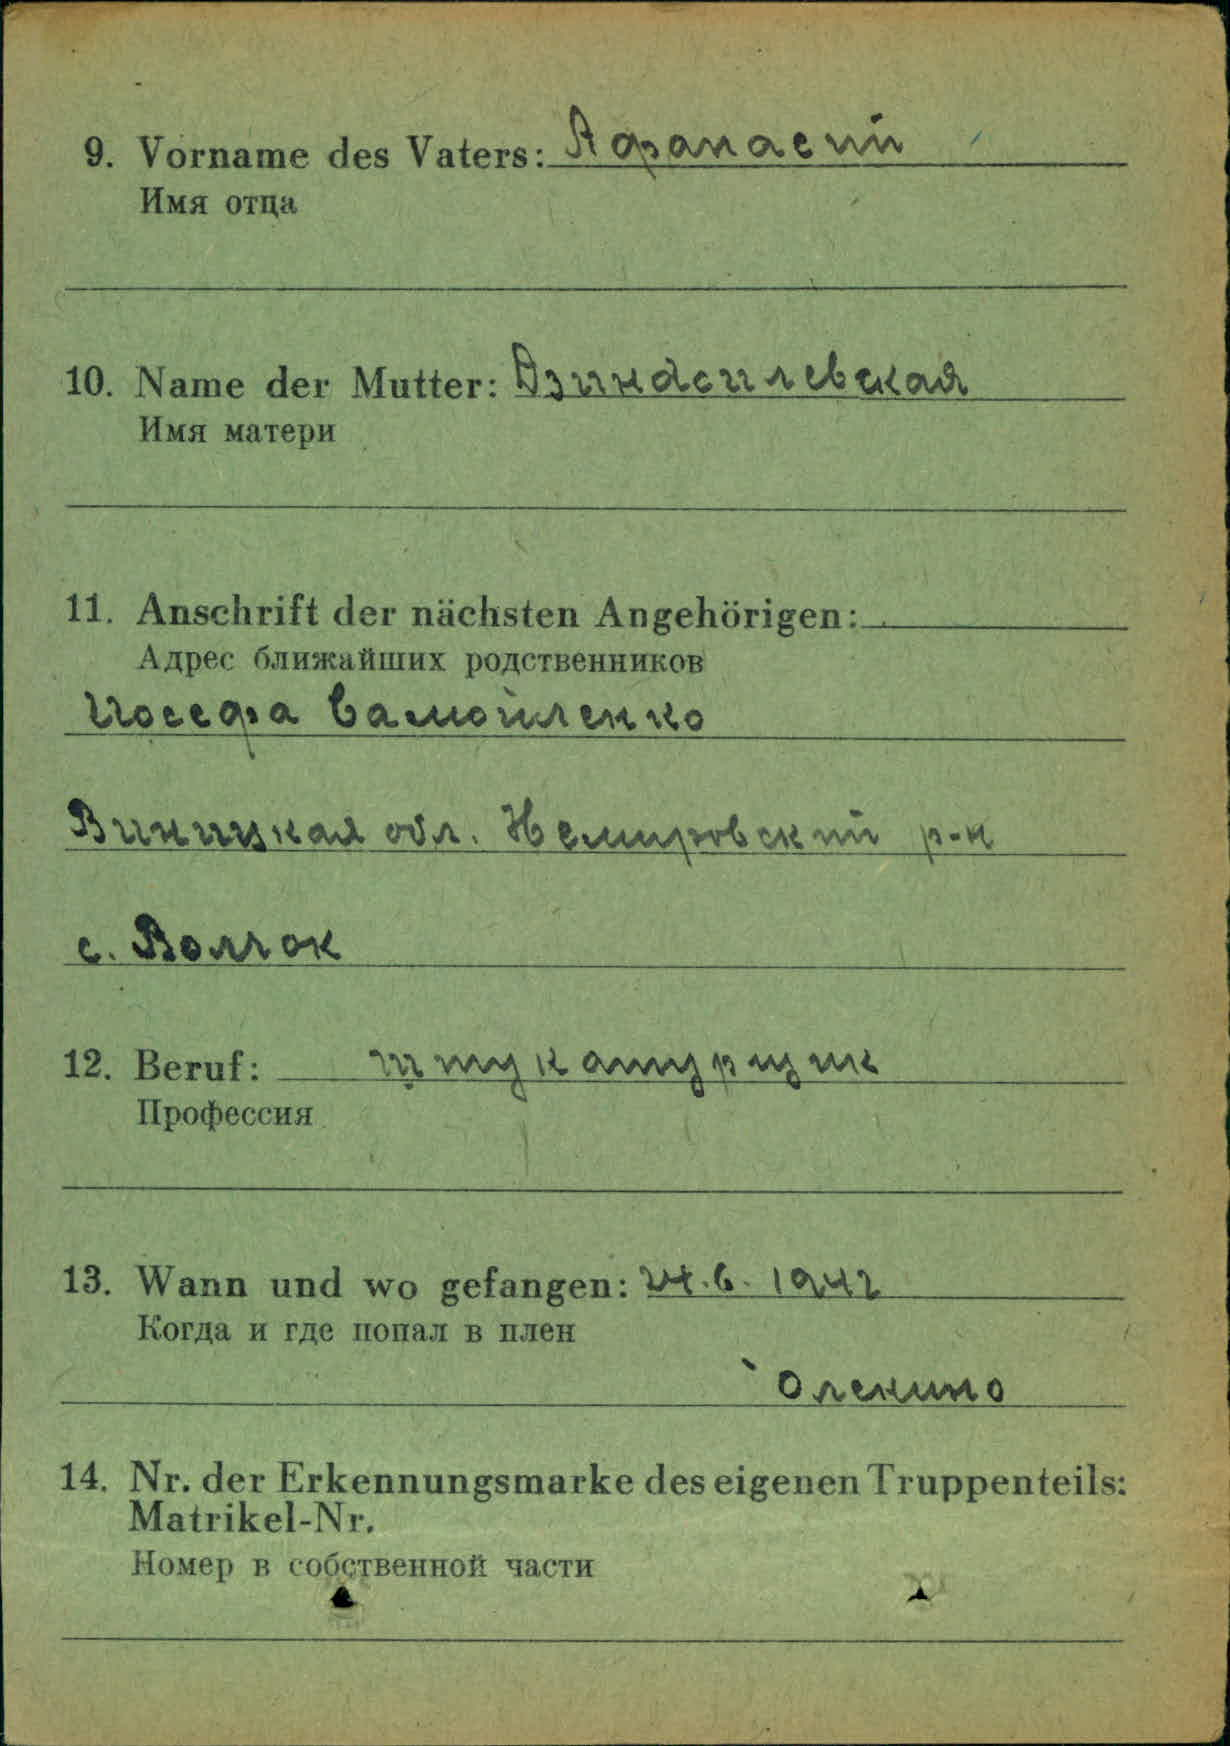 9. Vorname des Vaters: Афанасий
Имя отца
10. Name der Mutter:
Имя матери
11. Anschrift der nächsten Angehörigen:
Адрес ближайших родственников
Иосефа Самойленко
Виницкая обл. Немировский р-н
с. Волчок
12. Beruf: штукатурщик
Профессия
13. Wann und wo gefangen: 24.6.1942
Когда и где попал в плен
Оленино
14. Nr. der Erkennungsmarke des eigenen Truppenteils:
Matrikel-Nr.
Номер в собственной части